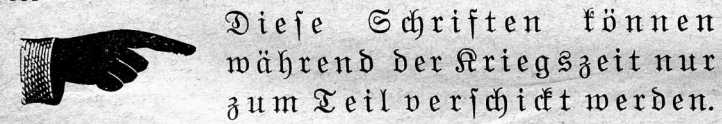 Dieſe Schriften können
während der Kriegszeit nur
zum Teil verſchickt werden.